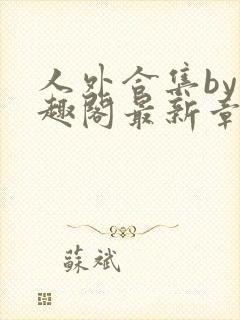 人外合集by
趣阁最新章
蘇斌